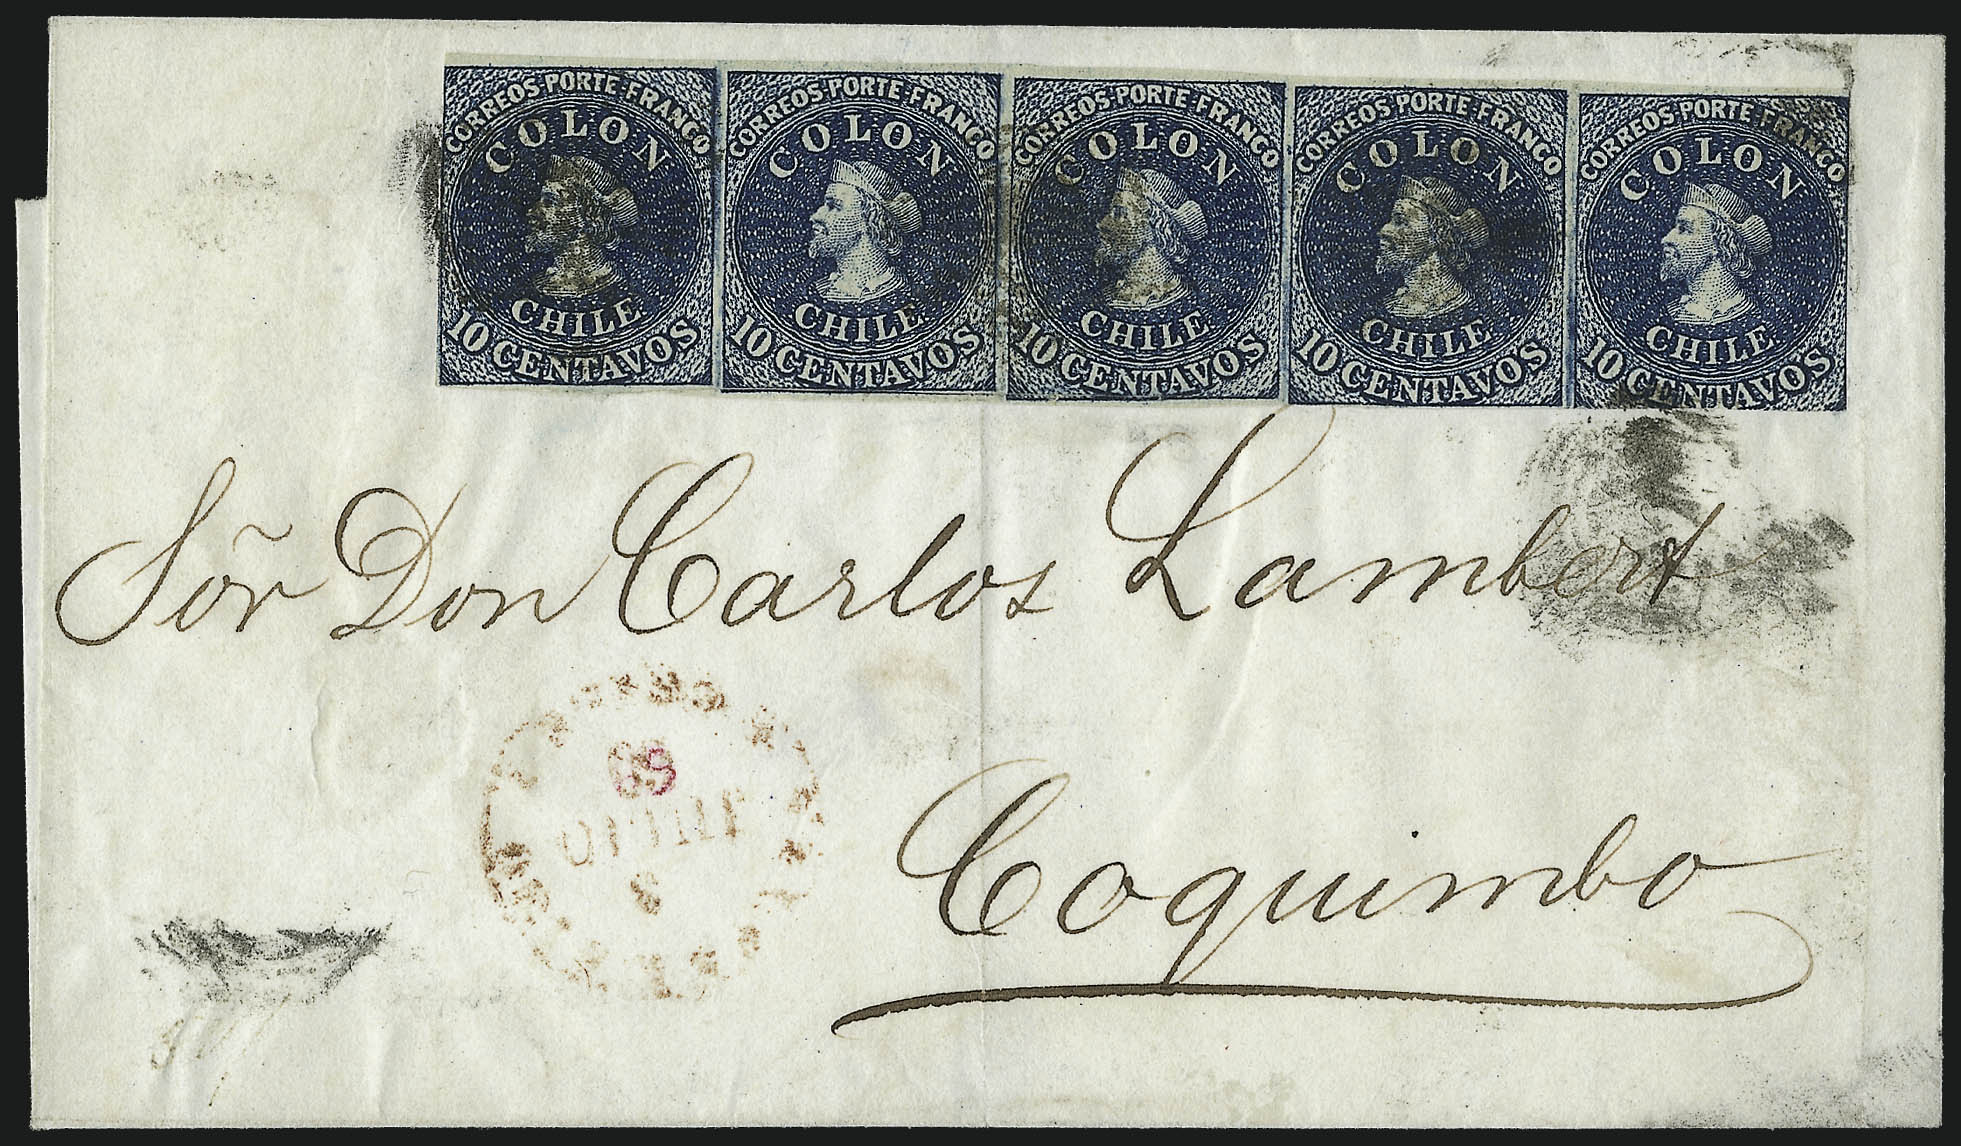 CORREOS PORTE FRANCO CORREOS PORTE FRANCO CORREOS PORTE FRANCO CORREOS PORTE FRANCO CORREOS PORTE FRANCO
COLON COLON COLON COLON COLON
CHILE CHILE CHILE CHILE CHILE
10 CENTAVOS 10 CENTAVOS 10 CENTAVOS 10 CENTAVOS 10 CENTAVOS
Sõr Don Carlos Lambert
Coquimbo